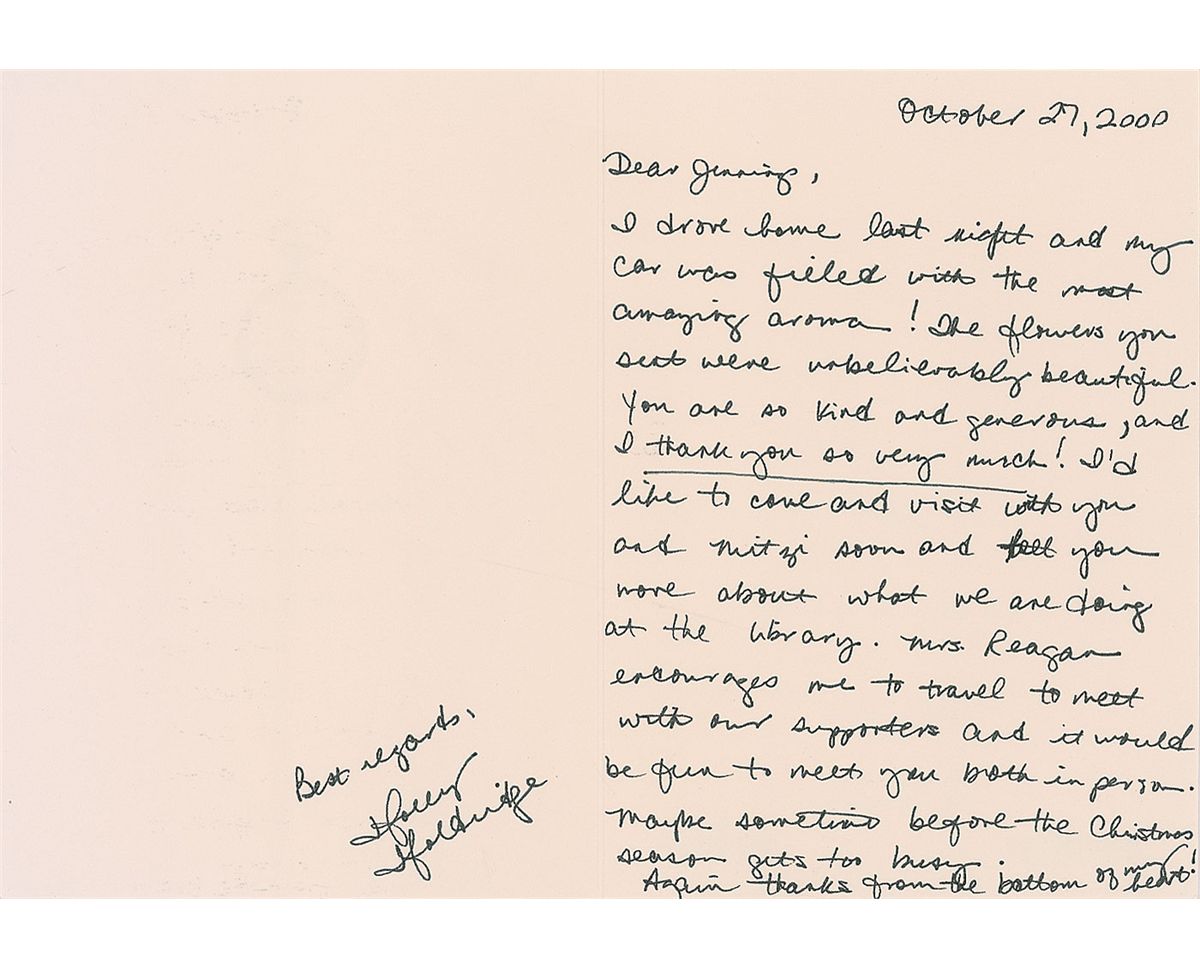 October 27, 2000
Dear Jennings,
I drove home last night and my
car was filled with the most
amazing aroma! The flowers you
sent were unbelievably beautiful.
You are so kind and generous, and
I thank you so very much! I'd
like to come and visit with you
and Mitzi soon and tell you
more about what we are doing
at the library. Mrs. Reagan
encourages me to travel to meet
with our supporters and it would
be fun to meet you both in person.
Maybe sometime before the Christmas
season gets too busy.
Again thanks from the bottom of my heart!
Best regards,
Holly
Holdridge